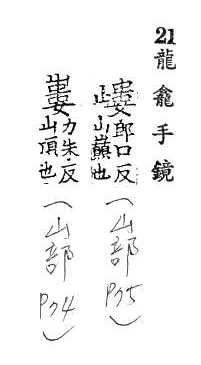 21 龍龕手鏡
郎口反
山巔也
(山部 P75)
力朱反
山頂也
(山部 P74)